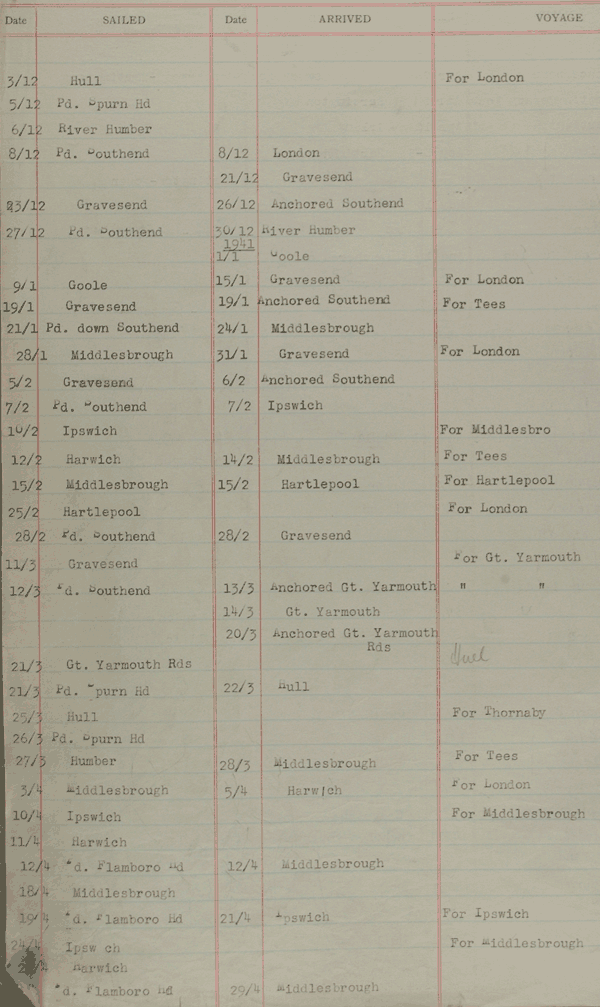 Date SAILED Date ARRIVED VOYAGE
3/12 Hull For London
5/12 Pd. Spurn Hd
6/12 River Humber
8/12 Pd. Southend 8/12 London
21/12 Gravesend
23/12 Gravesend 26/12 Anchored Southend
27/12 Pd. Southend 30/12 River Humber
1941
1/1 Goole
9/1 Goole 15/1 Gravesend For London
19/1 Gravesend 19/1 Anchored Southend For Tees
21/1 Pd. down Southend 24/1 Middlesbrough
28/1 Middlesbrough 31/1 Gravesend For London
5/2 Gravesend 6/2 Anchored Southend
7/2 Pd. Southend 7/2 Ipswich
10/2 Ipswich For Middlesbro
12/2 Harwich 14/2 Middlesbrough For Tees
15/2 Middlesbrough 15/2 Hartlepool For Hartlepool
25/2 Hartlepool For London
28/2 Pd. Southend 28/2 Gravesend
11/3 Gravesend For Gt. Yarmouth
12/3 Pd. Southend 13/3 Anchored Gt. Yarmouth " "
14/3 Gt. Yarmouth
20/3 Anchored Gt. Yarmouth
Rds
21/3 Gt. Yarmouth Rds Hull
21/3 Pd. Spurn Hd 22/3 Hull
25/3 Hull For Thornaby
26/3 Pd. Spurn Hd
27/3 Humber 28/3 Middlesbrough For Tees
3/4 Middlesbrough 5/4 Harwich For London
10/4 Ipswich For Middlesbrough
11/4 Harwich
12/4 Pd. Flamboro Hd 12/4 Middlesbrough
18/4 Middlesbrough
19/4 Pd. Flamboro Hd 21/4 Ipswich For Ipswich
24/4 Ipsw ch For Middlesbrough
Harwich
Pd. Flamboro Hd 29/4 Middlesbrough